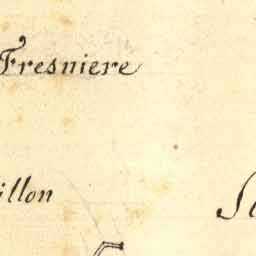 Fresniere
illon